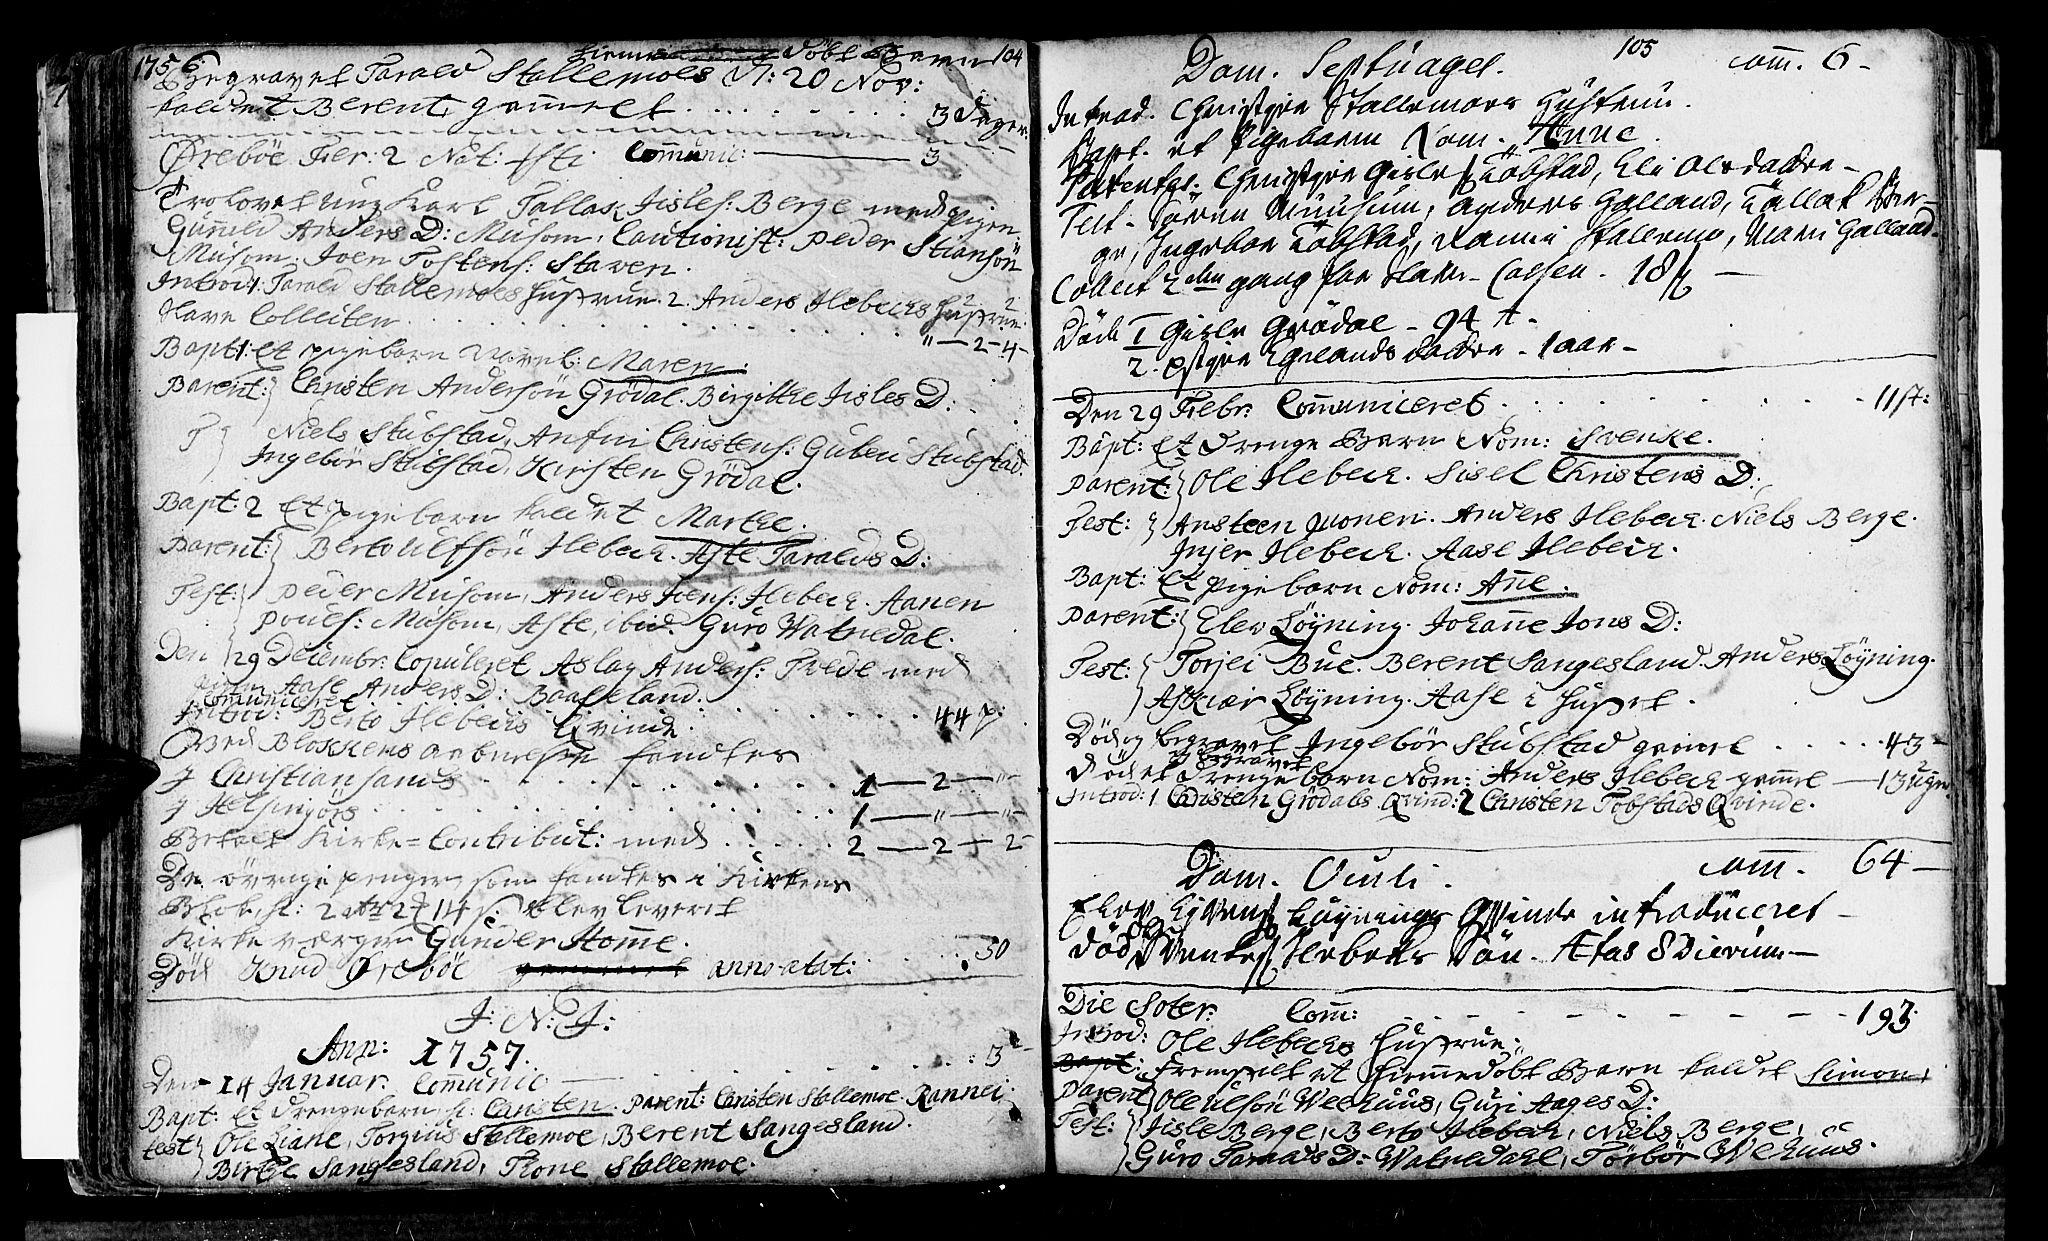 1756. hiemedöbt Barn 104
Begravet Tarald Stallemoes N: 20 Nov:
kaldet Berent, gammelt . . . . . . . 3 dager.
Öreböe Fer: 2 Nat: Xsti Comunic: — 3
Trolovet ung Karl Tallak Jisles: Berge med pigen
Gunnild Anders D: Musom. Cautionist: Peder Stiansön
Musom. Joen Tostens: Staven.
Introd: 1. Tarald Stallemoes hustrue. 2. Anders Ilebecks hustrue.
Tavle Collecten . . . . . . . " — 2 — 4 -
Bapt: 1. et pigebarn Navnl: Maren.
Parent: Christen Andersön Grödal. Birgithe Jisles D:
T Niels Stubstad, Anfin Christens: Guben Stubstad
Ingebör Stubstad, Kirsten Grödal.
Bapt: 2 Et pigebarn kaldet Marthe.
Parent: Berto Ulfsön Ilebeck. Aste Taralds D:
Test: Peder Musom, Anders Joens: Ilebeck. Aanen
Pouls: Musom, Aste, ibid. Guro Watnedal.
Den 29 Decembr: Copuleret Aslag Anders: Trede med
pigen Aase Anders D: Baaseland.
Comuniceret . . . . . . . 44 p:
Introd: Berto Ilebecks Qvinde.
Ved Blokkens aabnelse fandtes
J Christiansands . . . . . 1 — 2 — " -
J Helsingörs . . . . . 1 — " — " -
Betalt Kirke=Contribut: med . . . . . 2 — 2 — 2 -
De övrige penger, som fandtes i Kirkens
Blok, sc: 2 14 s. blev leveret
Kirkeværgen Gunder Homme.
Död Knud Öreböe anno ætat: . . . . 50
J: N: J:
Ann: 1757.
Den 14 Januar: Comunic — . . . . . 3
Bapt: et drengebarn sc: Christen. Parent: Christen Stallemoe. Rannei
test Ole Liane, Torgius Stallemoe, Berent Sangesland.
Birthe Sangesland, Thone Stallemoe.
Dom. Septuages. 105 com. 6 -
Introd. Christen Stallemoes Hustrue.
Bapt. et Pigebarn Nom. Anne.
Parentes. Christen Gisles Töbstad, Eli Olsdatter -
Test. Sören Muusum, Anders Galland, Tallak Ber-
ge, Ingebor Töbstad, Rannei Stallemo, Mari Galland.
Collect 2den gang for Tavle-Cassen. 18 s —
Döde 1 Gisle Grödal - 94 A -
2. Egelands datter - 1 aar -
Den 29 Febr: Comuniceret . . . . . . . 117:
Bapt: Et drenge Barn Nom: Svenke.
Parent: Ole Ilebeck. Sisel Christens D:
Test: Ansteen Quonen. Anders Ilebeck. Niels Berge.
Injer Ilebeck. Aase Ilebeck.
Bapt: Et pigebarn Nom: Anne.
Parent: Elev Löyning. Johanne Jons D:
Test: Torjei Bue. Berent Sangesland. Anders Löyning.
Askier Löyning. Aase i huset.
Död og begravet Ingebör Stubstad gammel . . . . . 43 -
Död et drengebarn Nom: Anders Ilebeck gammel — 13 uger.
og begravet
Introd: 1 Christen Grödals Qvind: 2 Christen Töbstads Qvinde.
Dom. Oculi. com. 64 -
Elev Löynings Qvinde introduceret -
död Svenkes Ilebeks Sön. Ætas 8 Dierum -
Die Soter: Com: — — — 193
Introd: Ole Ilebecks hustrue.
Bapt: Fremstilt et hiemmedöbt Barn kaldet Simon.
Parent Ole Ulsön Weehuus, Guri Aages D:
Test: Jisle Berge, Berto Ilebeck, Niels Berge,
Guro Taralds D: Watnedahl, Törbör Wehuus.